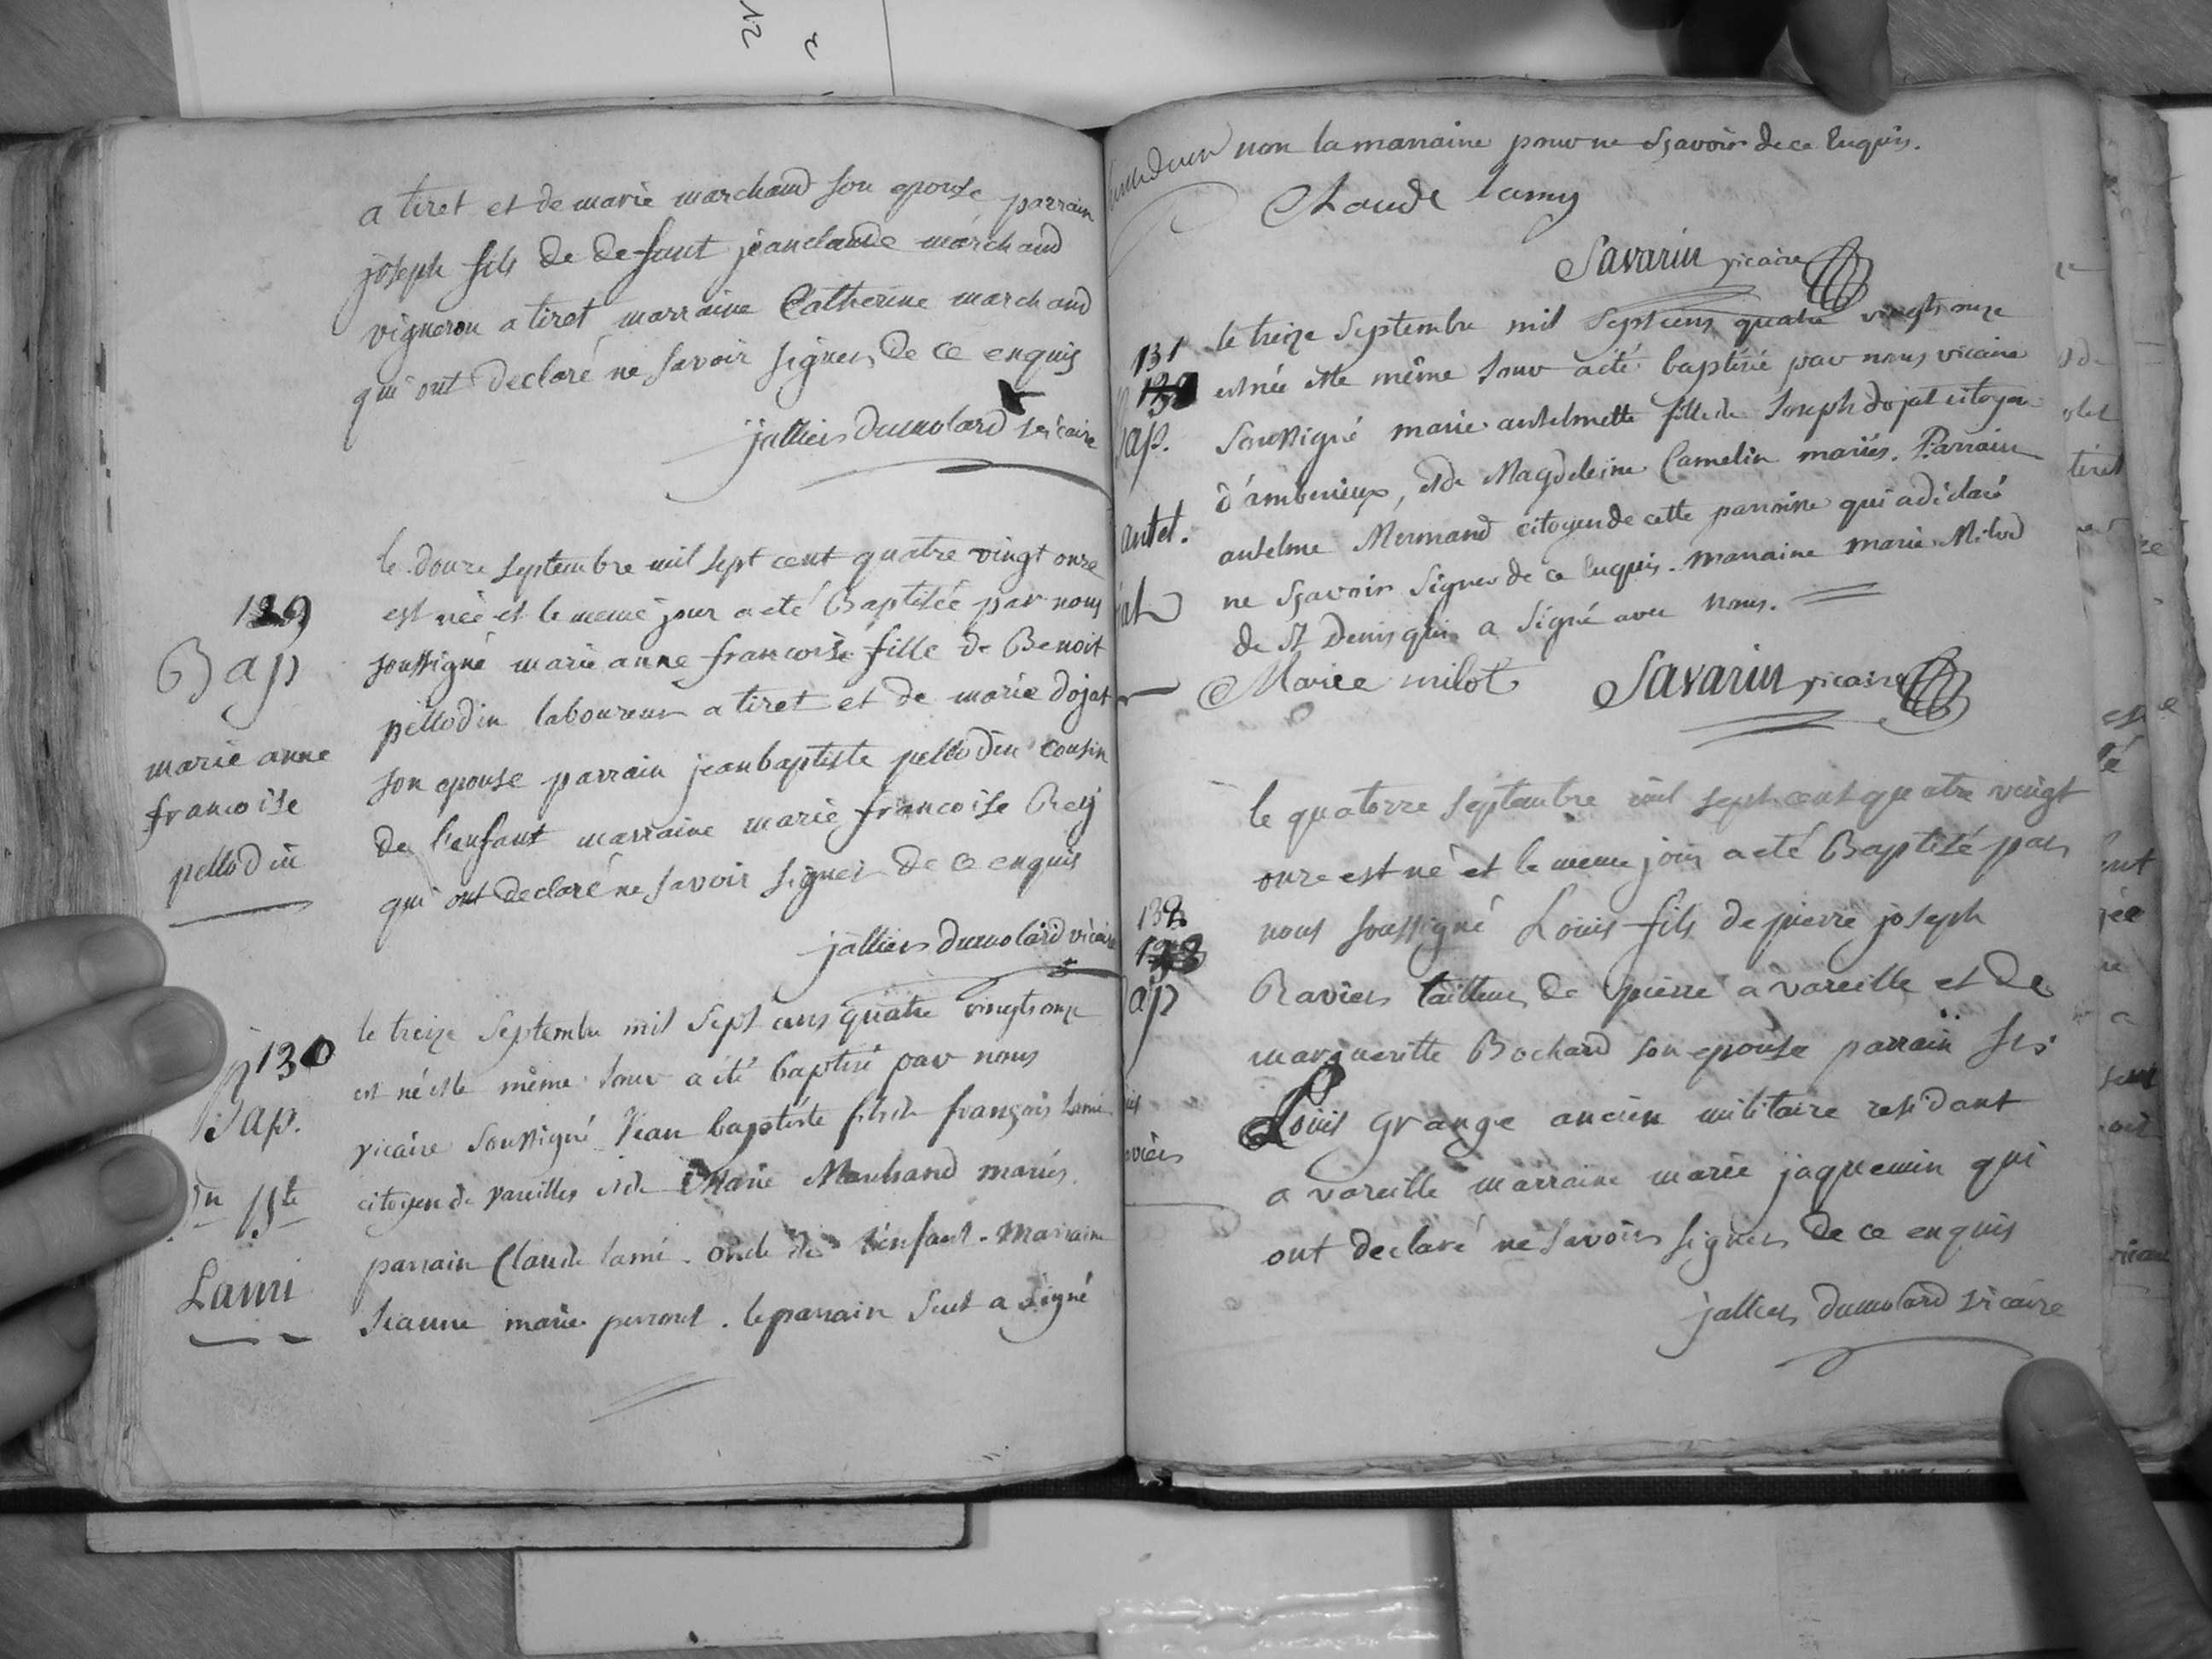 a tiret et de marie marchand son epouse parrain
joseph fils de defunt jeanclaude marchand
vigneron a tiret marraine Catherine marchand
qui ont declaré ne savoir signer de ce enquis
jallier dumolard vicaire
129
Bap
marie anne
francoise
pellodin
le douze septembre mil sept cent quatre vingt onze
est née et le meme jour a eté Baptisée par nous
soussigné marie anne francoise fille de Benoit
pellodin laboureur a tiret et de marie dojat
son epouse parrain jean baptiste pellodin cousin
de l'enfant marraine marie francoise Rey
qui ont declaré ne savoir signer de ce enquis
jallier dumolard vicaire
130
Bap.
Jn Bte
Lami
le treize septembre mil sept cens quatre vingts onze
est né et le même jour a été baptisé par nous
vicaire soussigné Jean baptiste fils de françois Lami
citoyen de vareilles et de Marie Marchand mariés.
parrain Claude lami. oncle de l'enfant. Marraine
Jeanne marie perronet. le parrain seul a signé
non la marraine pour ne sçavoir de ce Enquis.
Claude lamy
Savarin vicaire
131
ap.
antel.
jat
le treize septembre mil septcens quatre vingts onze
est née et le même jour a été baptisée par nous vicaire
soussigné marie antelmette fille de Joseph dojat citoyen
d'amberieux, et de Magdeleine Camelin mariés. Parrain
antelme Mermand citoyen de cette parroisse qui a déclaré
ne sçavoir signer de ce Enquis. marraine marie Milod
de St Denis qui a signé avec nous.
Mariee milot
Savarin vicaire
132
ap
viers
le quatorze septembre mil sept cent quatre vingt
onze est né et le meme jour a eté Baptisé par
nous soussigné Louis fils de pierre joseph
Raviers tailleur de pierre a vareille et de
margueritte Bochard son epouse parrain Srs
Louis grange ancien militaire residant
a vareille marraine marie jaquemin qui
ont declaré ne savoir signer de ce enquis
jallier dumolard vicaire